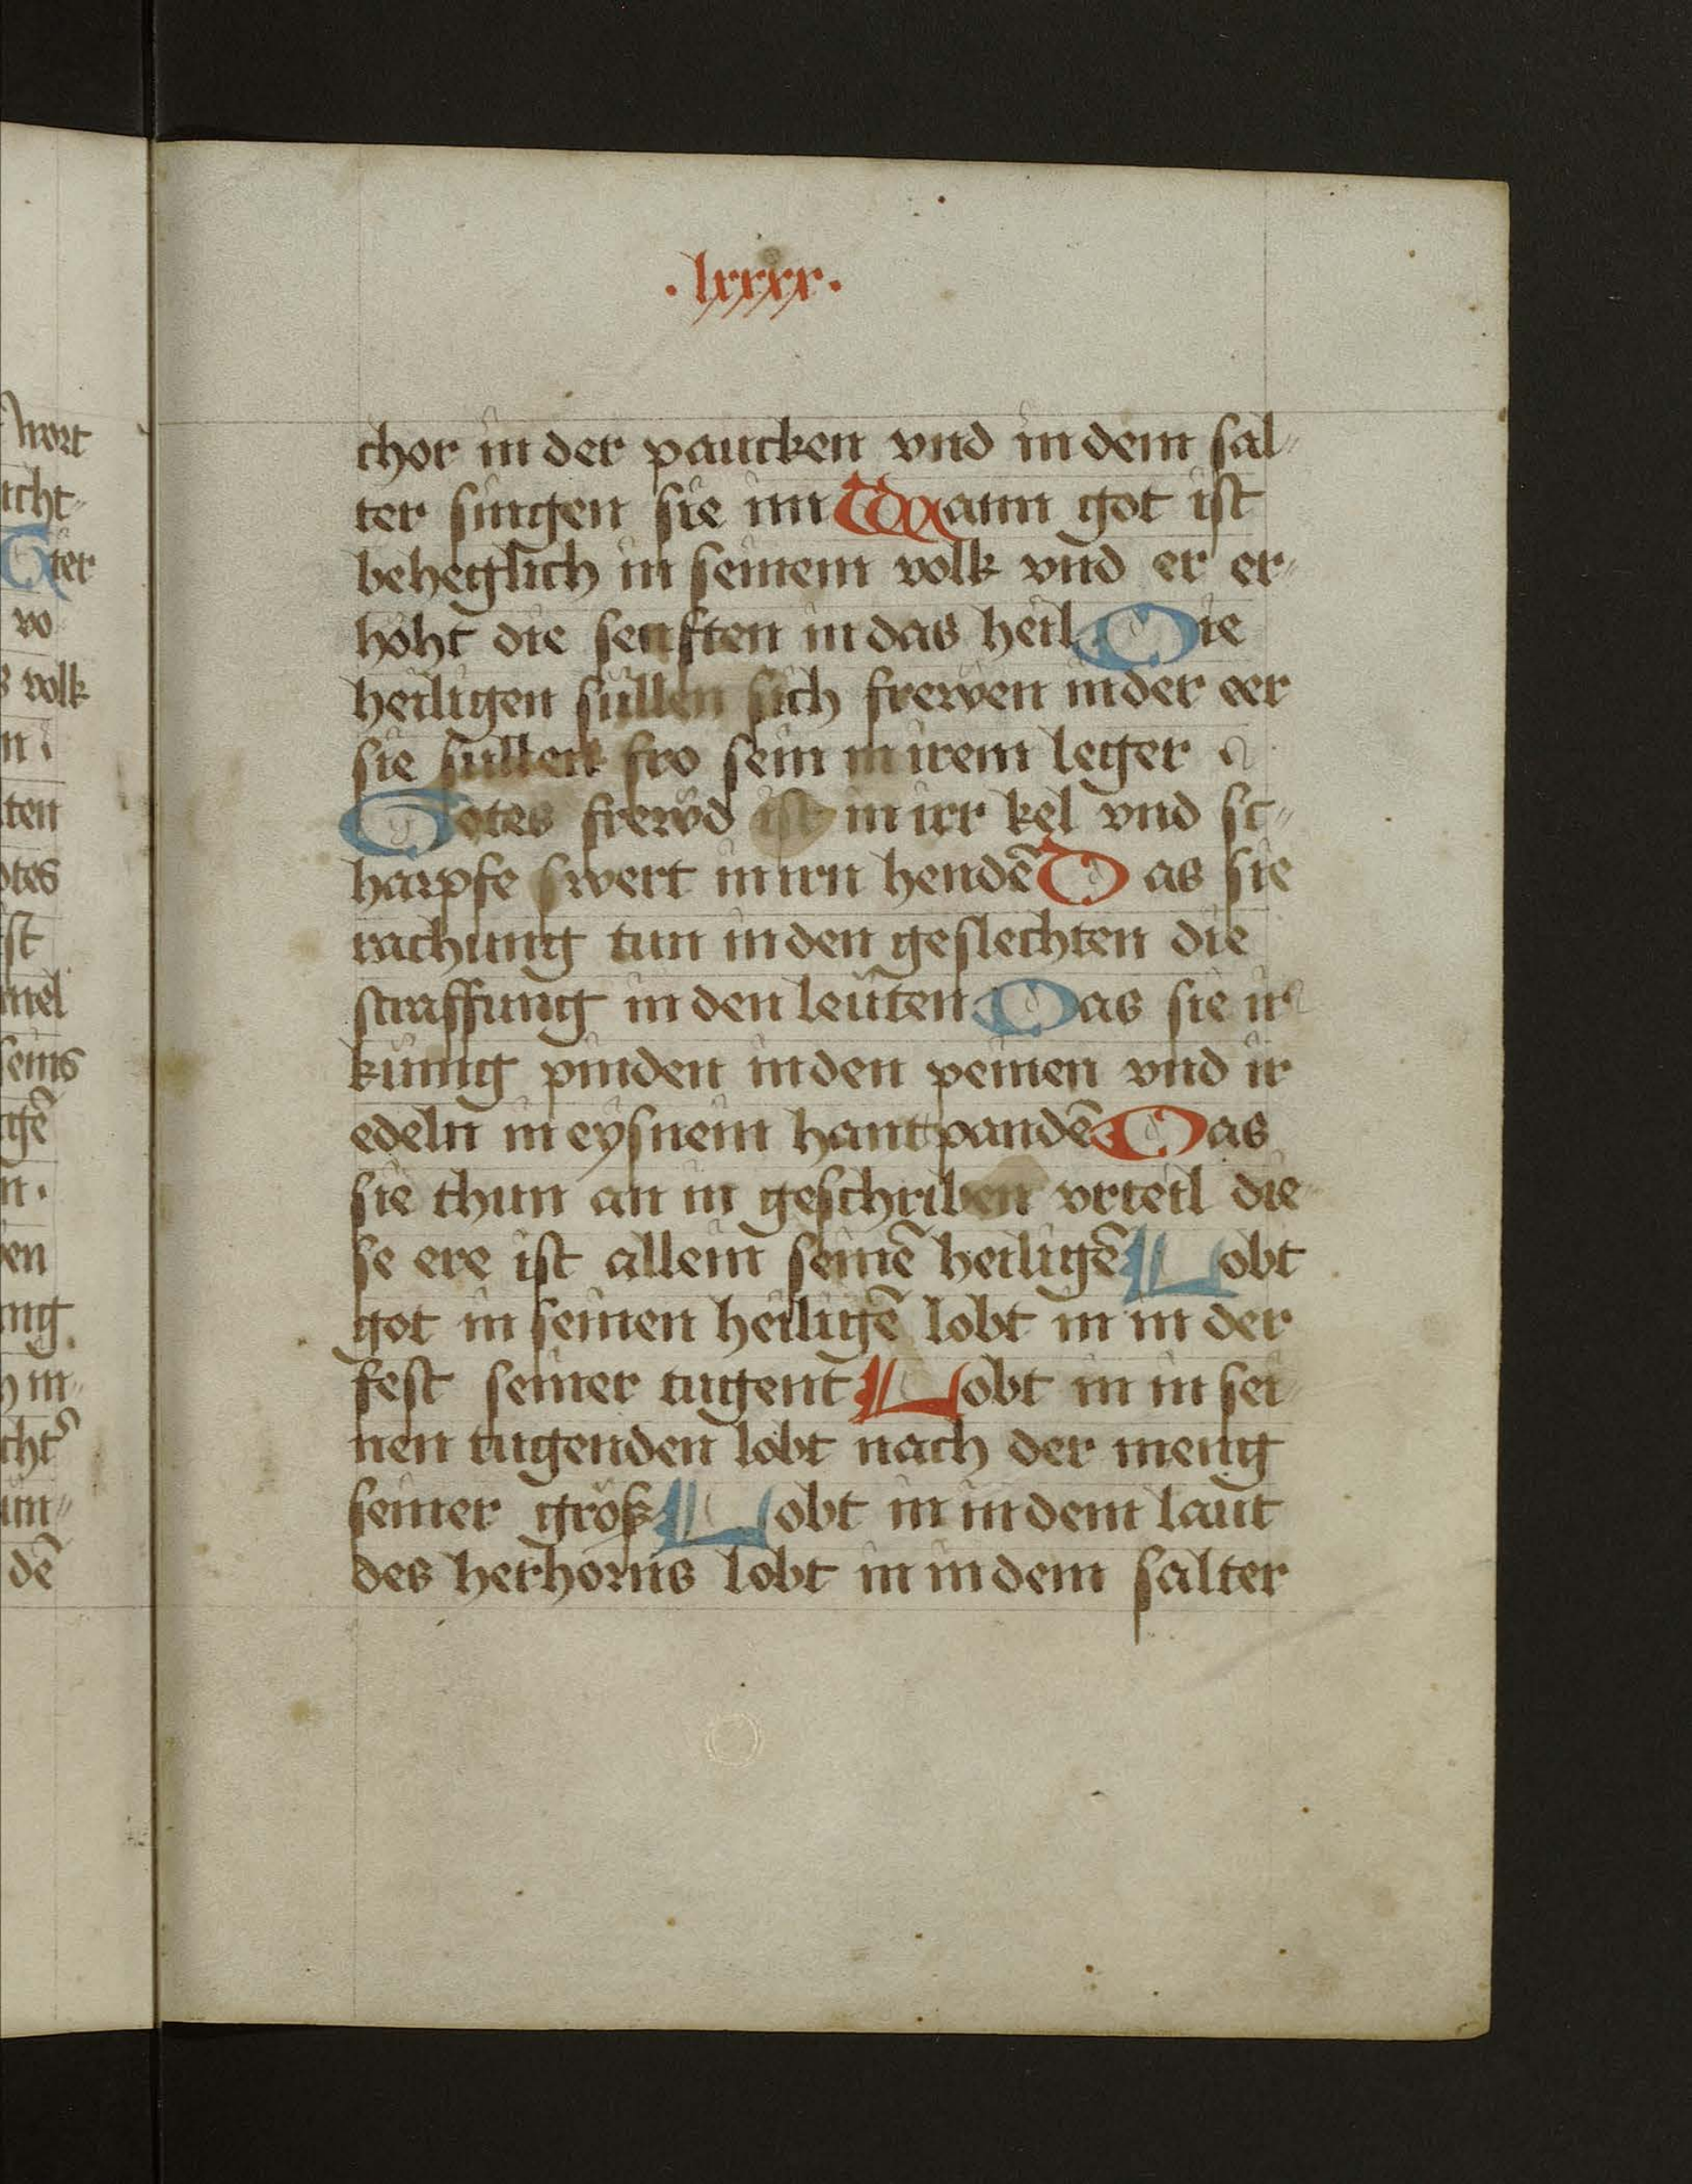 wort
icht
ter
vo
s volk
ten
otes
ist
mel
seins
gē
n.
en
ng
dē
.lxxxx.
chor in der paucken vnd in dem sal⸗
ter singen sie im Wann got ist
beheglich in seinem volk vnd er er⸗
höht die senften in das heil Die
heiligen süllen sich frewen in der eer
sie süllen fro sein in irem leger
Gotes frewd ist in irr kel vnd sc⸗
harpfe swert in irn hendē Das sie
rachung tun in den geslechten die
straffung in den leüten Das sie ir
künig pinden in den peinen vnd ir
edeln in eysnein hantpandē Das
sie thun an in geschriben vrteil die
se ere ist allein seinē heiligē Lobt
got in seinen heiligē lobt in in der
fest seiner tugent Lobt in in sei
nen tugenden lobt nach der meng
seiner größ Lobt in in dem laut
des herhorns lobt in in dem salter